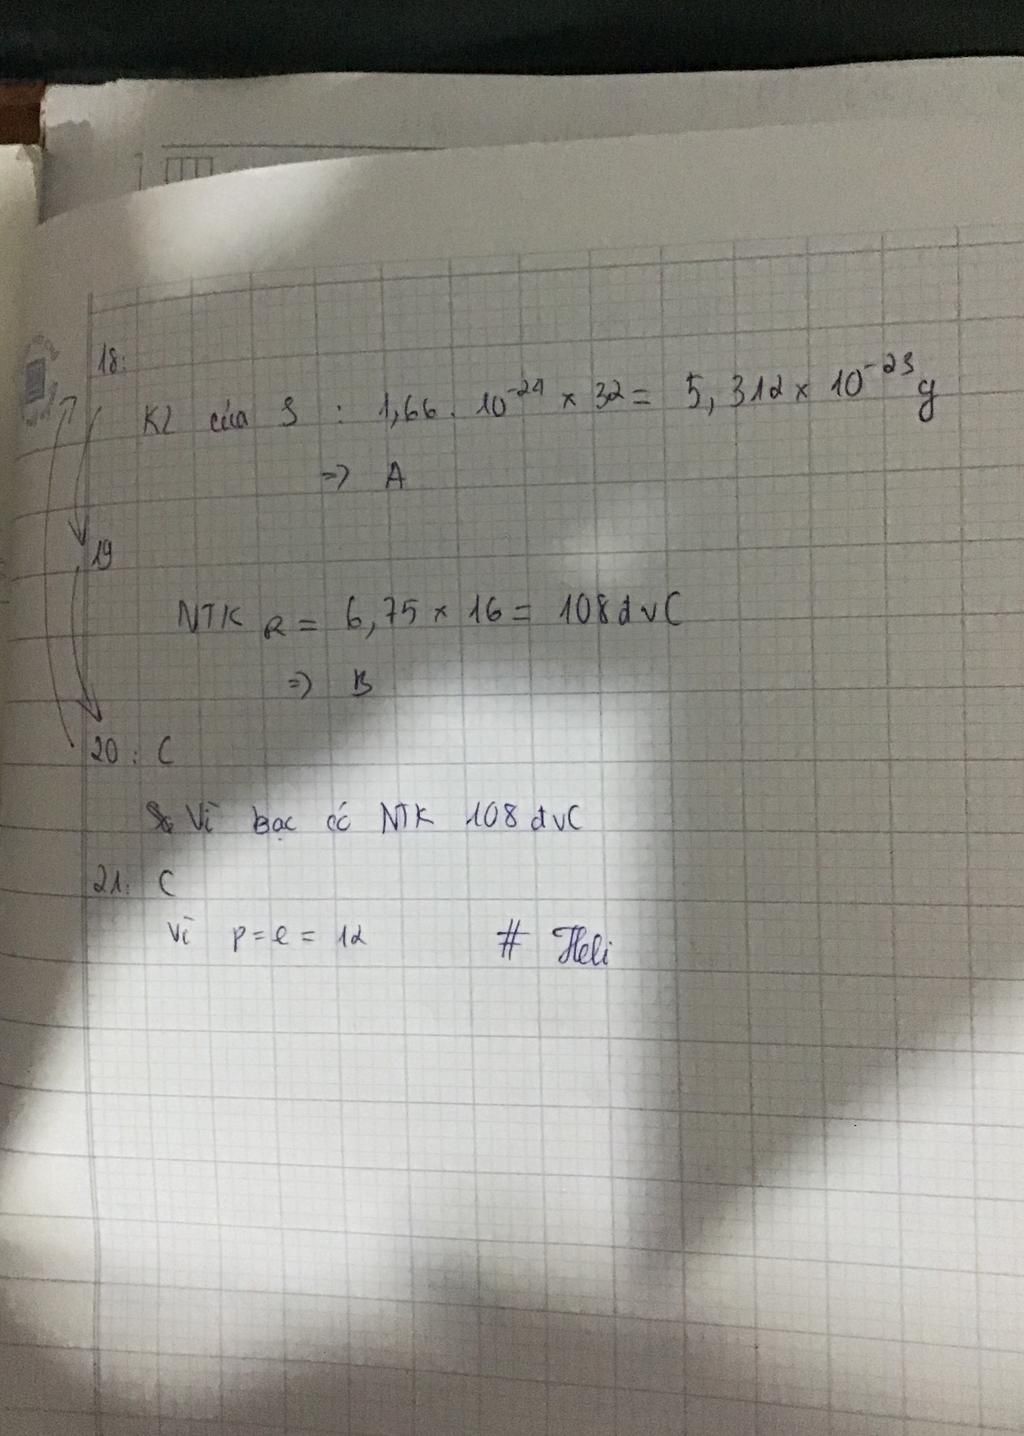 18:
KL của S : 1,66. 10⁻²⁴ × 32 = 5,312 × 10⁻²³ g
=> A
19
NTK R = 6,75 × 16 = 108 đvC
=> B
20 : C
Vì bạc có NTK 108 đvC
21: C
Vì p = e = 12 # Heli